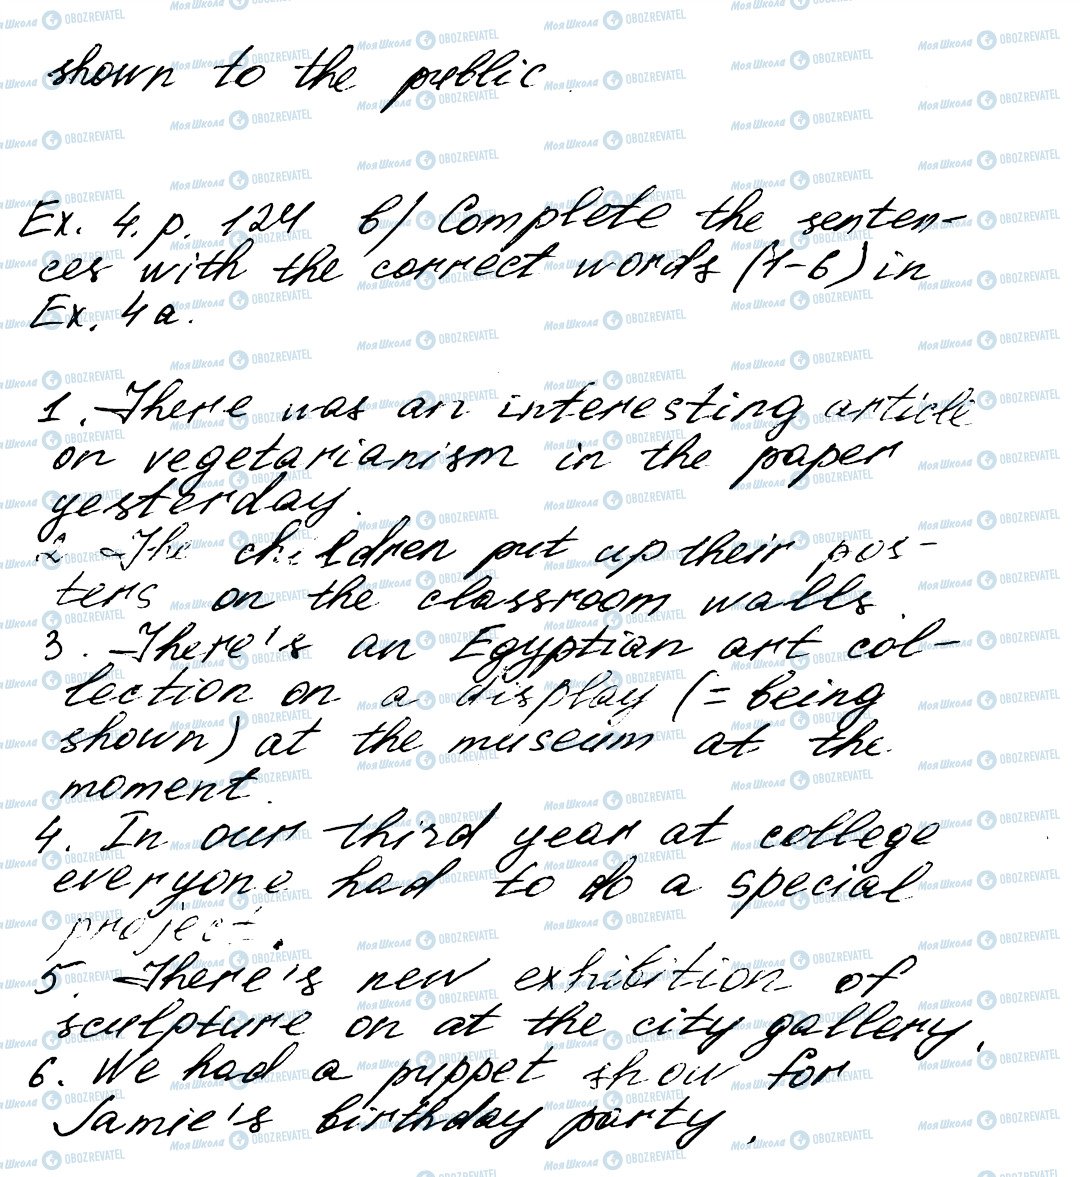 shown to the public.
Ex. 4. p. 124 b) Complete the senten-
ces with the correct words (1-6) in
Ex. 4a.
1. There was an interesting article
on vegetarianism in the paper
yesterday.
2. The children put up their pos-
ters on the classroom walls.
3. There's an Egyptian art col-
lection on a display (= being
shown) at the museum at the
moment.
4. In our third year at college
everyone had to do a special
project.
5. There's new exhibition of
sculpture on at the city gallery.
6. We had a puppet show for
Jamie's birthday party.